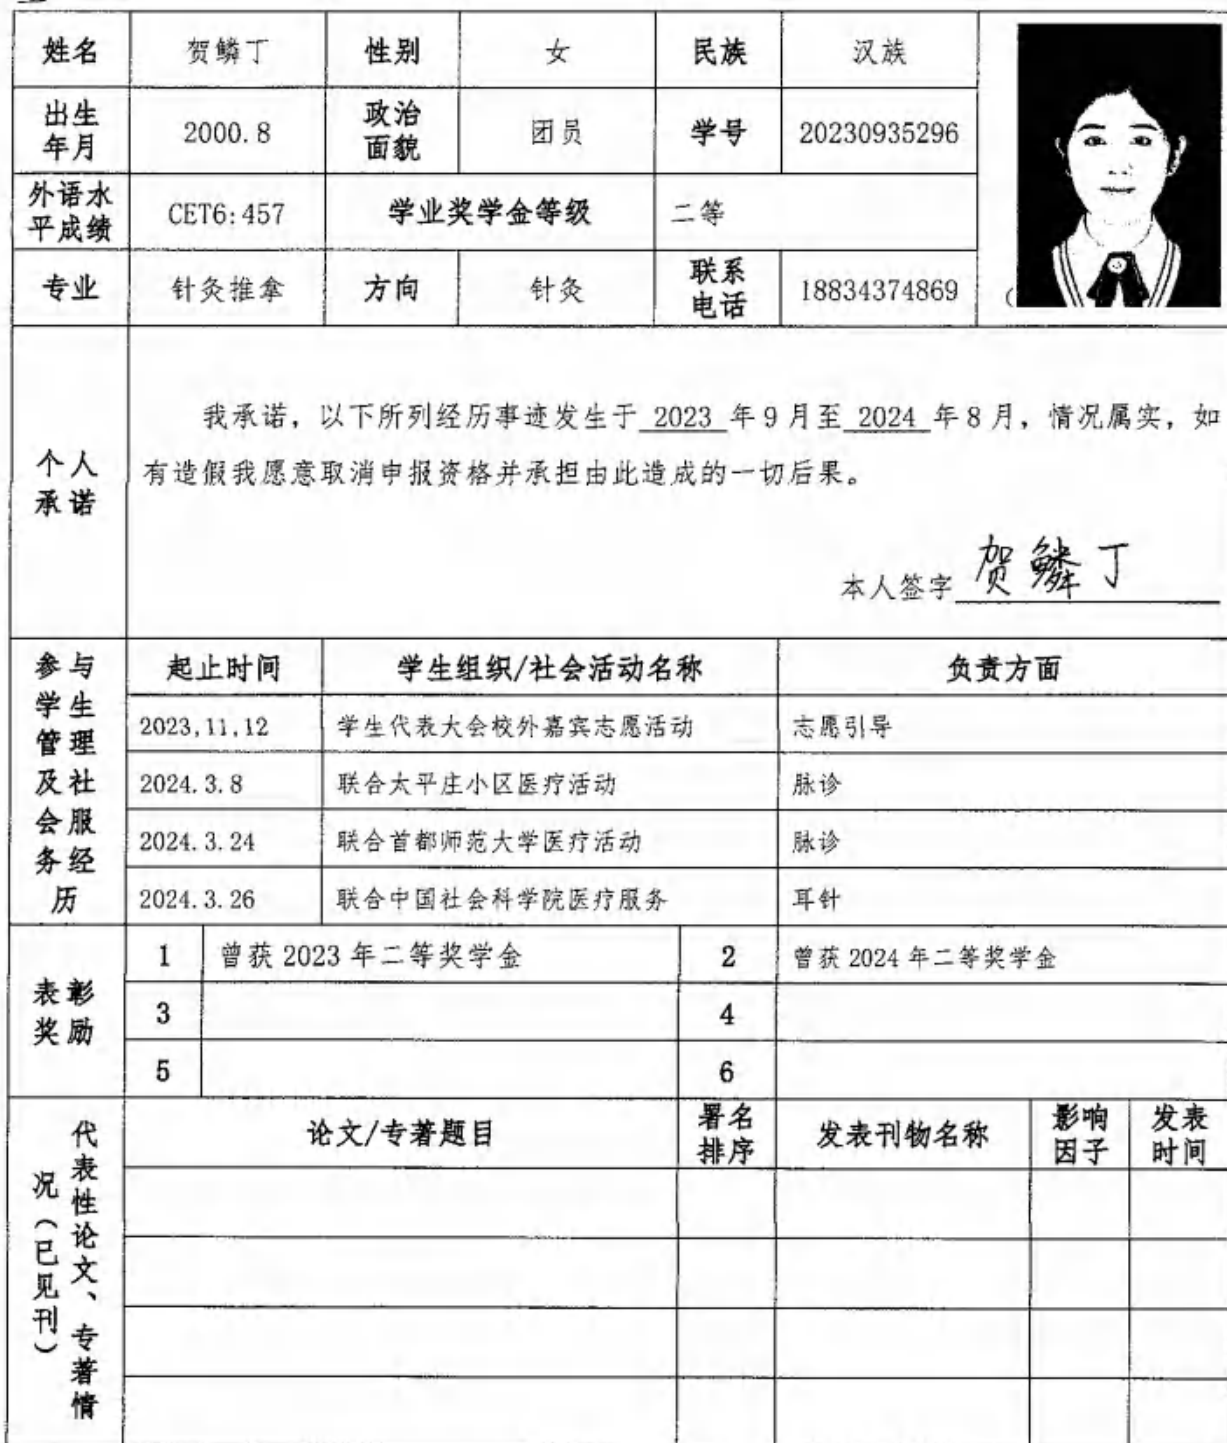 姓名 贺鳞丁 性别 女 民族 汉族
出生年月 2000.8 政治面貌 团员 学号 20230935296
外语水平成绩 CET6:457 学业奖学金等级 二等
专业 针灸推拿 方向 针灸 联系电话 18834374869
个人承诺
我承诺，以下所列经历事迹发生于 2023 年9月至 2024 年8月，情况属实，如
有造假我愿意取消申报资格并承担由此造成的一切后果。
本人签字 贺鳞丁
参与学生管理及社会服务经历
起止时间 学生组织/社会活动名称 负责方面
2023,11,12 学生代表大会校外嘉宾志愿活动 志愿引导
2024.3.8 联合太平庄小区医疗活动 脉诊
2024.3.24 联合首都师范大学医疗活动 脉诊
2024.3.26 联合中国社会科学院医疗服务 耳针
表彰奖励
1 曾获 2023 年二等奖学金 2 曾获 2024 年二等奖学金
3 4
5 6
代表性论文、专著情况（已见刊）
论文/专著题目 署名排序 发表刊物名称 影响因子 发表时间